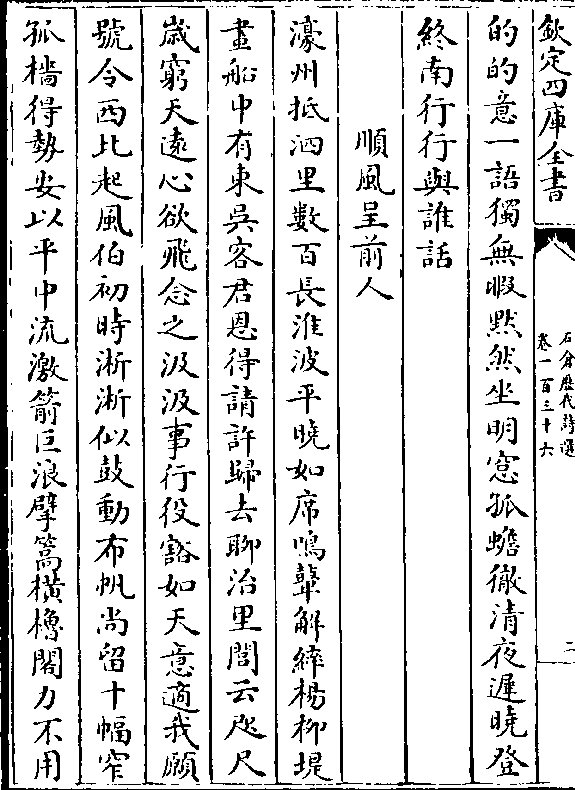 欽定四庫全書
石倉歷代詩選
卷一百三十六
二
的的意一語獨無暇黙然坐明窓孤蟾徹清夜遲曉登
終南行行與誰話
順風呈前人
濠州抵泗里數百長淮波平曉如席鳴鼙解縴楊柳堤
畫船中有東吳客君恩得請許歸去聊治里閭云咫尺
嵗窮天逺心欲飛念之汲汲事行役豁如天意適我願
號令西北起風伯初時淅淅似鼓動布帆尚留十幅窄
孤檣得勢安以平中流激箭巨浪擘篙横櫓閣力不用